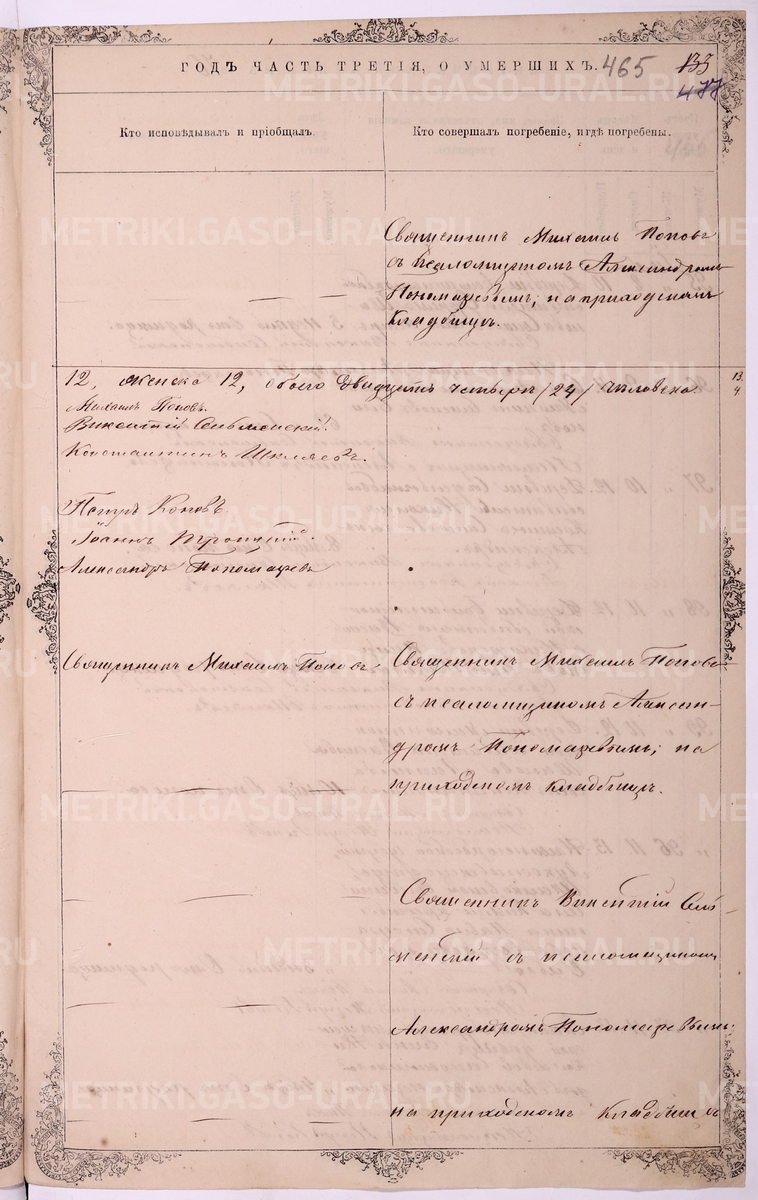 ГОДЪ ЧАСТЬ ТРЕТІЯ, О УМЕРШИХЪ. 465
133
477
Кто исповѣдывалъ и пріобщалъ.
Кто совершалъ погребеніе, и гдѣ погребены.
Священникъ Михаилъ Поповъ
съ псаломщикомъ Александромъ
Пономаревымъ, на приходскомъ
кладбищѣ.
12, женска 12, обоего двадцать четыре /24/ человека.
13.
4.
Михаилъ Поповъ.
Викентій
Константинъ Шкляевъ.
Петръ
Іоаннъ Троицкій.
Александръ Пономаревъ
Священникъ Михаилъ Поповъ
Священникъ Михаилъ Поповъ
съ псаломщикомъ Алексан-
дромъ Пономаревымъ; на
приходскомъ кладбищѣ.
Священникъ Викентій
съ псаломщикомъ
Александромъ Пономаревымъ
на приходскомъ кладбищѣ
METRIKI.GASO-URAL.RU